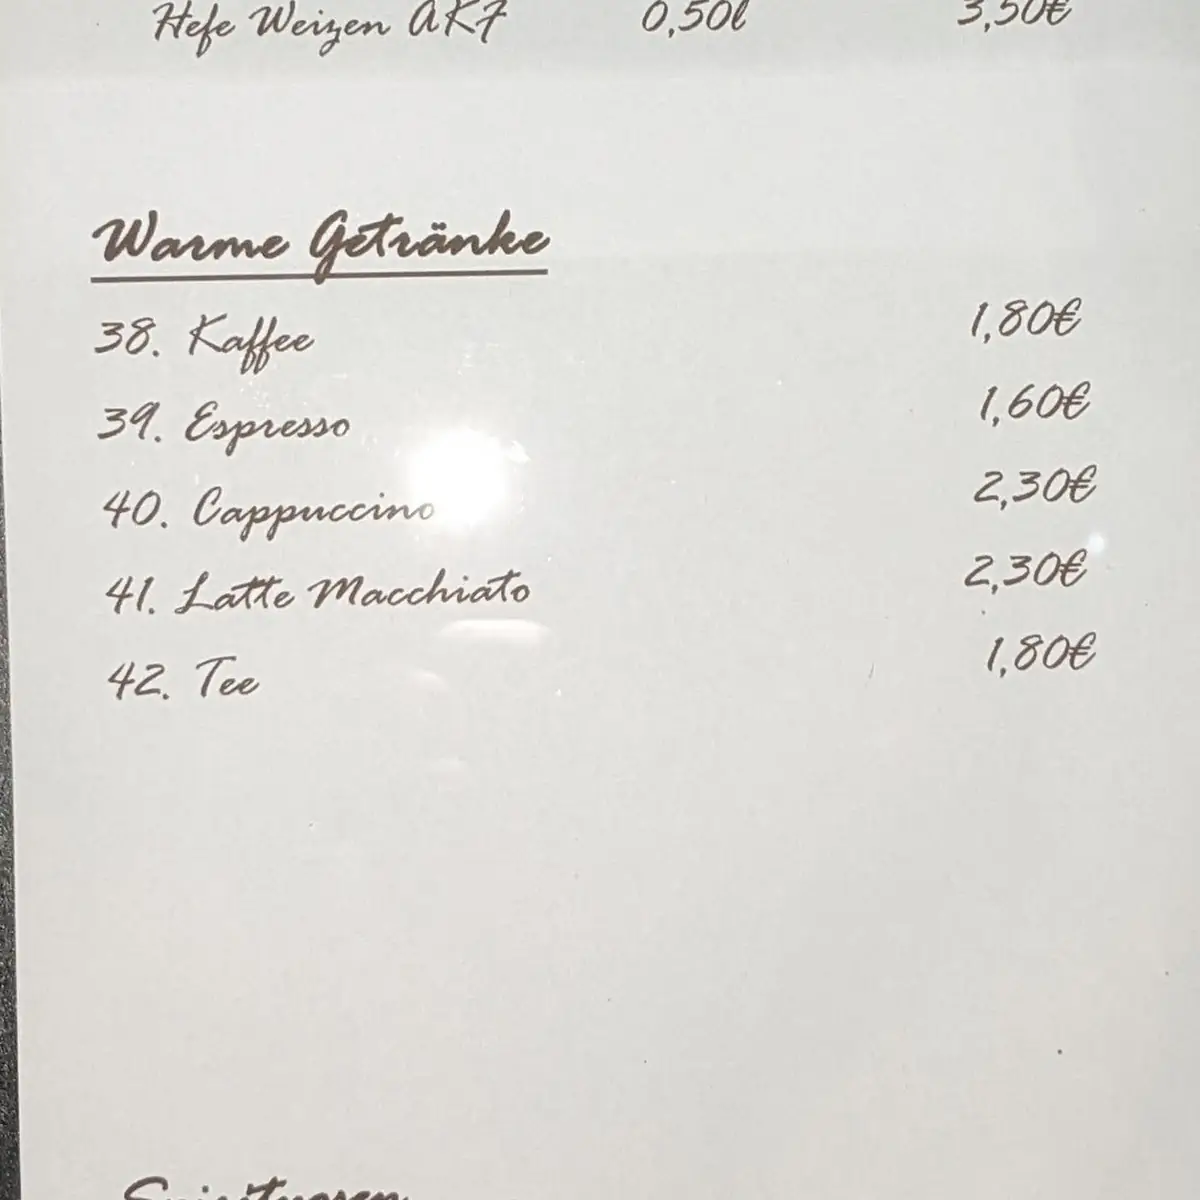 Hefe Weizen AKF 0,50l 3,50€
Warme Getränke
38. Kaffee 1,80€
39. Espresso 1,60€
40. Cappuccino 2,30€
41. Latte Macchiato 2,30€
42. Tee 1,80€
Spirituosen